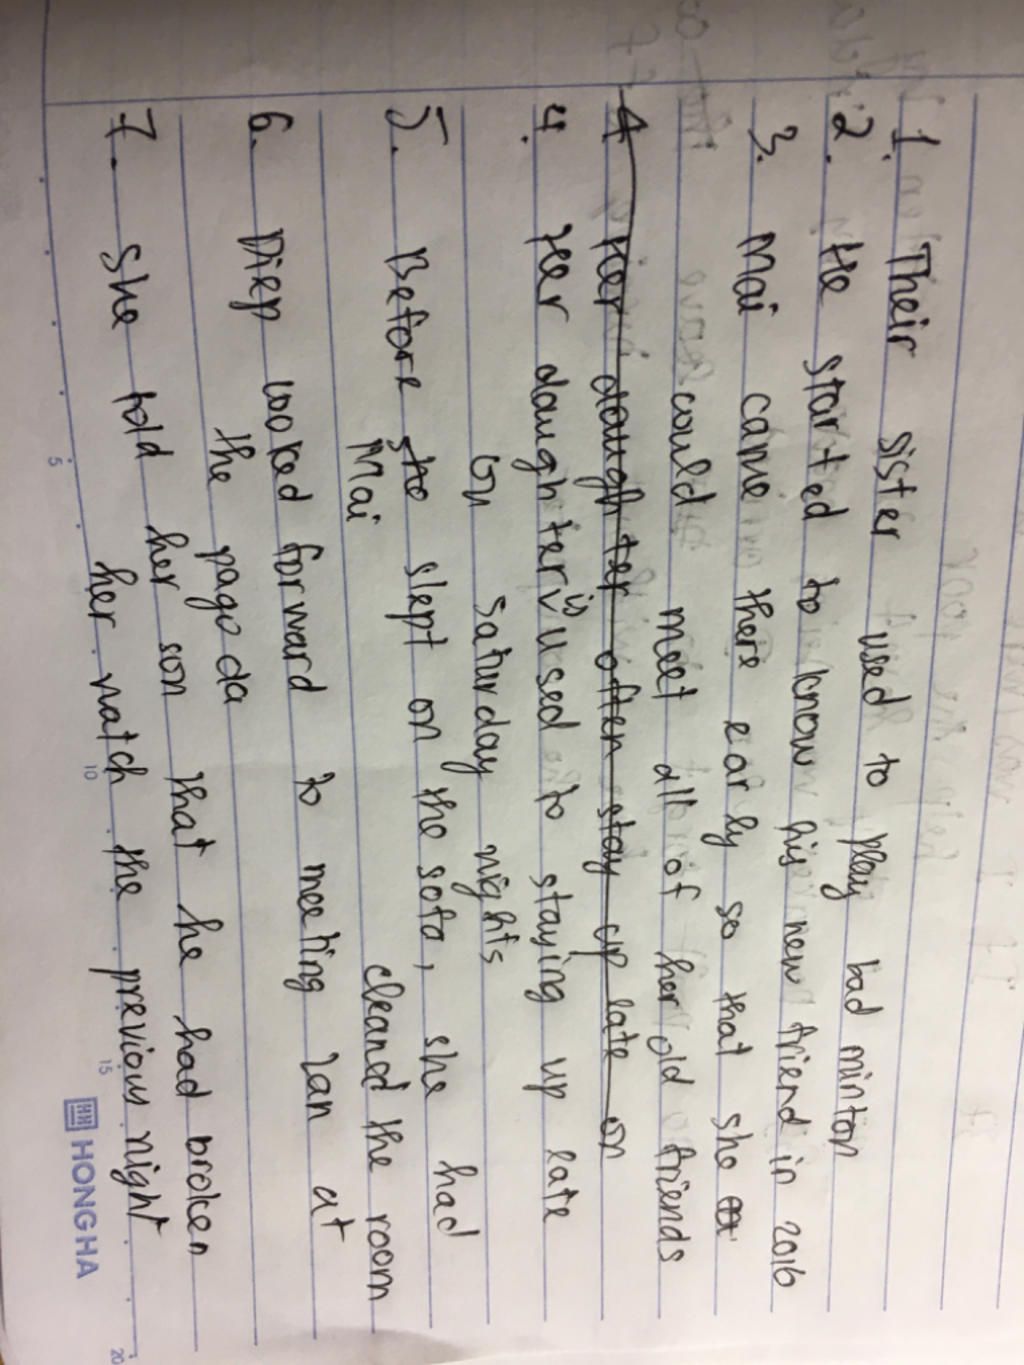 1. Their sister used to play badminton
2. He started to know his new friend in 2016
3. Mai came there early so that she
could meet all of her old friends
4 Her daughter often stay up late on
4. Her daughter is used to staying up late
on saturday nights
5. Before she slept on the sofa, she had
Mai cleaned the room
6. Diep looked forward to meeting Lan at
the pagoda
7. She told her son that he had broken
her watch the previous night
5 10 15 20
HH HONG HA